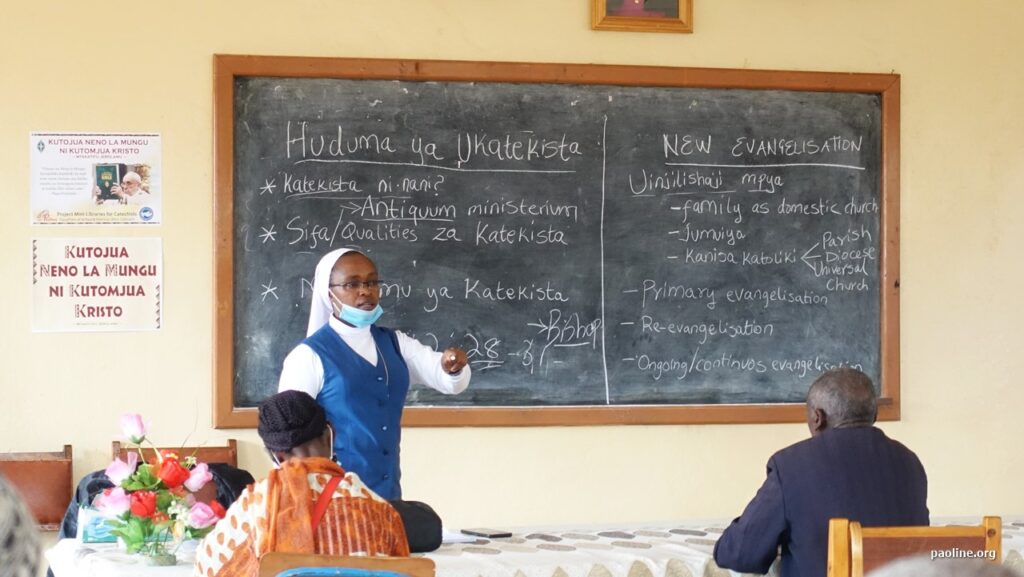 KUTOJUA NENO LA MUNGU
NI KUTOMJUA KRISTO
Project Mini Libraries for Catechists
KUTOJUA
NENO LA MUNGU
NI KUTOMJUA
KRISTO
Huduma ya Ukatekista
* Katekista ni nani?
→ Antiquum ministerium
* Sifa/Qualities za Katekista
* mu ya Katekista
→ Bishop
28
NEW EVANGELISATION
Uinjilishaji mpya
- family as domestic church
- Jumuiya
- Kanisa Katoliki
Parish
Diocese
Universal
Church
- Primary evangelisation
- Re-evangelisation
- Ongoing/continuos evangelisation
paoline.org